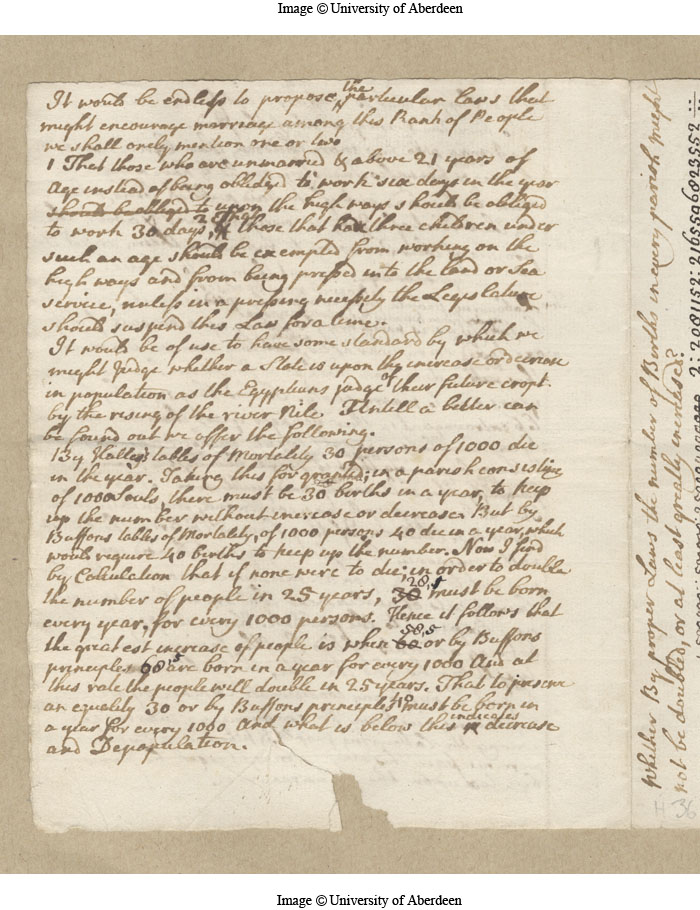 Image © University of Aberdeen
It would be endless to propose the particular laws that
might encourage marriage among this Rank of People
we shall onely mention one or two
1 That those who are unmarried & above 21 years of
Age instead of being oblidged to work six days in the year
should be allowed to upon the high ways should be oblidged
to work 30 days, 2 That those that have three children under
such an age should be exempted from working on the
high ways and from being pressed into the land or Sea
service, unless in a pressing necessity the Legislature
should suspend this Law for a time.
It would be of use to have some standard by which we
might Judge whether a State is upon the increase or decrease
in population as the Egyptians judge of their future crops
by the rising of the river Nile Untill a better can
be found out we offer the following.
1 By Halleys tables of Mortality 30 persons of 1000 die
in the year. Taking this for granted; in a parish consisting
of 1000 Souls, there must be 30 births in a year, to keep
up the number without increase or decrease. But by
Buffons tables of Mortality, of 1000 persons 40 die in a year, which
would require 40 births to keep up the number. Now I find
by Calculation that if none were to die; in order to double
the number of people in 25 years, 30 28,5 must be born
every year, for every 1000 persons. Hence it follows that
the greatest increase of people is when 60 58,5 or by Buffons
principles 68,5 are born in a year for every 1000 And at
this rate the people will double in 25 years. That to preserve
an equality 30 or by Buffons principles 40 must be born in
a year for every 1000 And what is below this indicates decrease
and Depopulation.
Whether By proper Laws the number of Births in every parish might
not be doubled, or at least greatly increased?
36
Image © University of Aberdeen